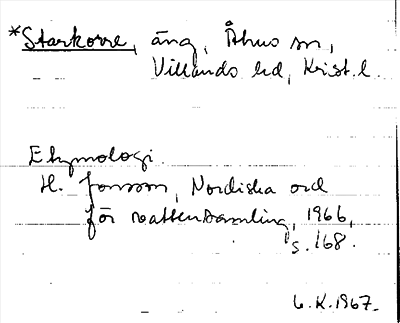 *Starkorre, äng, Åhus sn,
Villands hd, Krist. l.
Etymologi.
H. Jonsson, Nordiska ord
för vattensamling, 1966,
s. 168.
G.K. 1967.